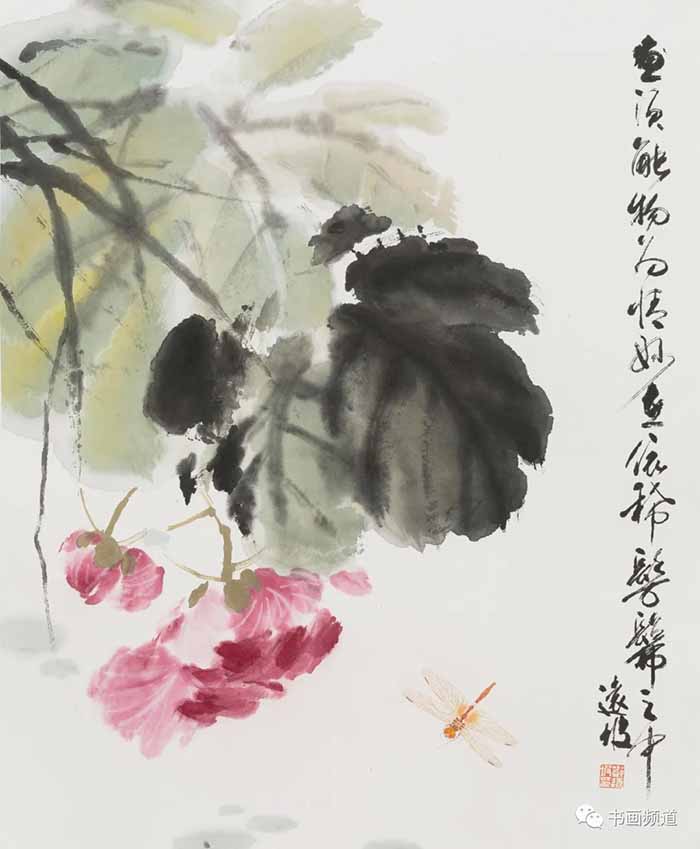 畫須能物為情妙在依稀髣髴之中
遠坡
书画频道